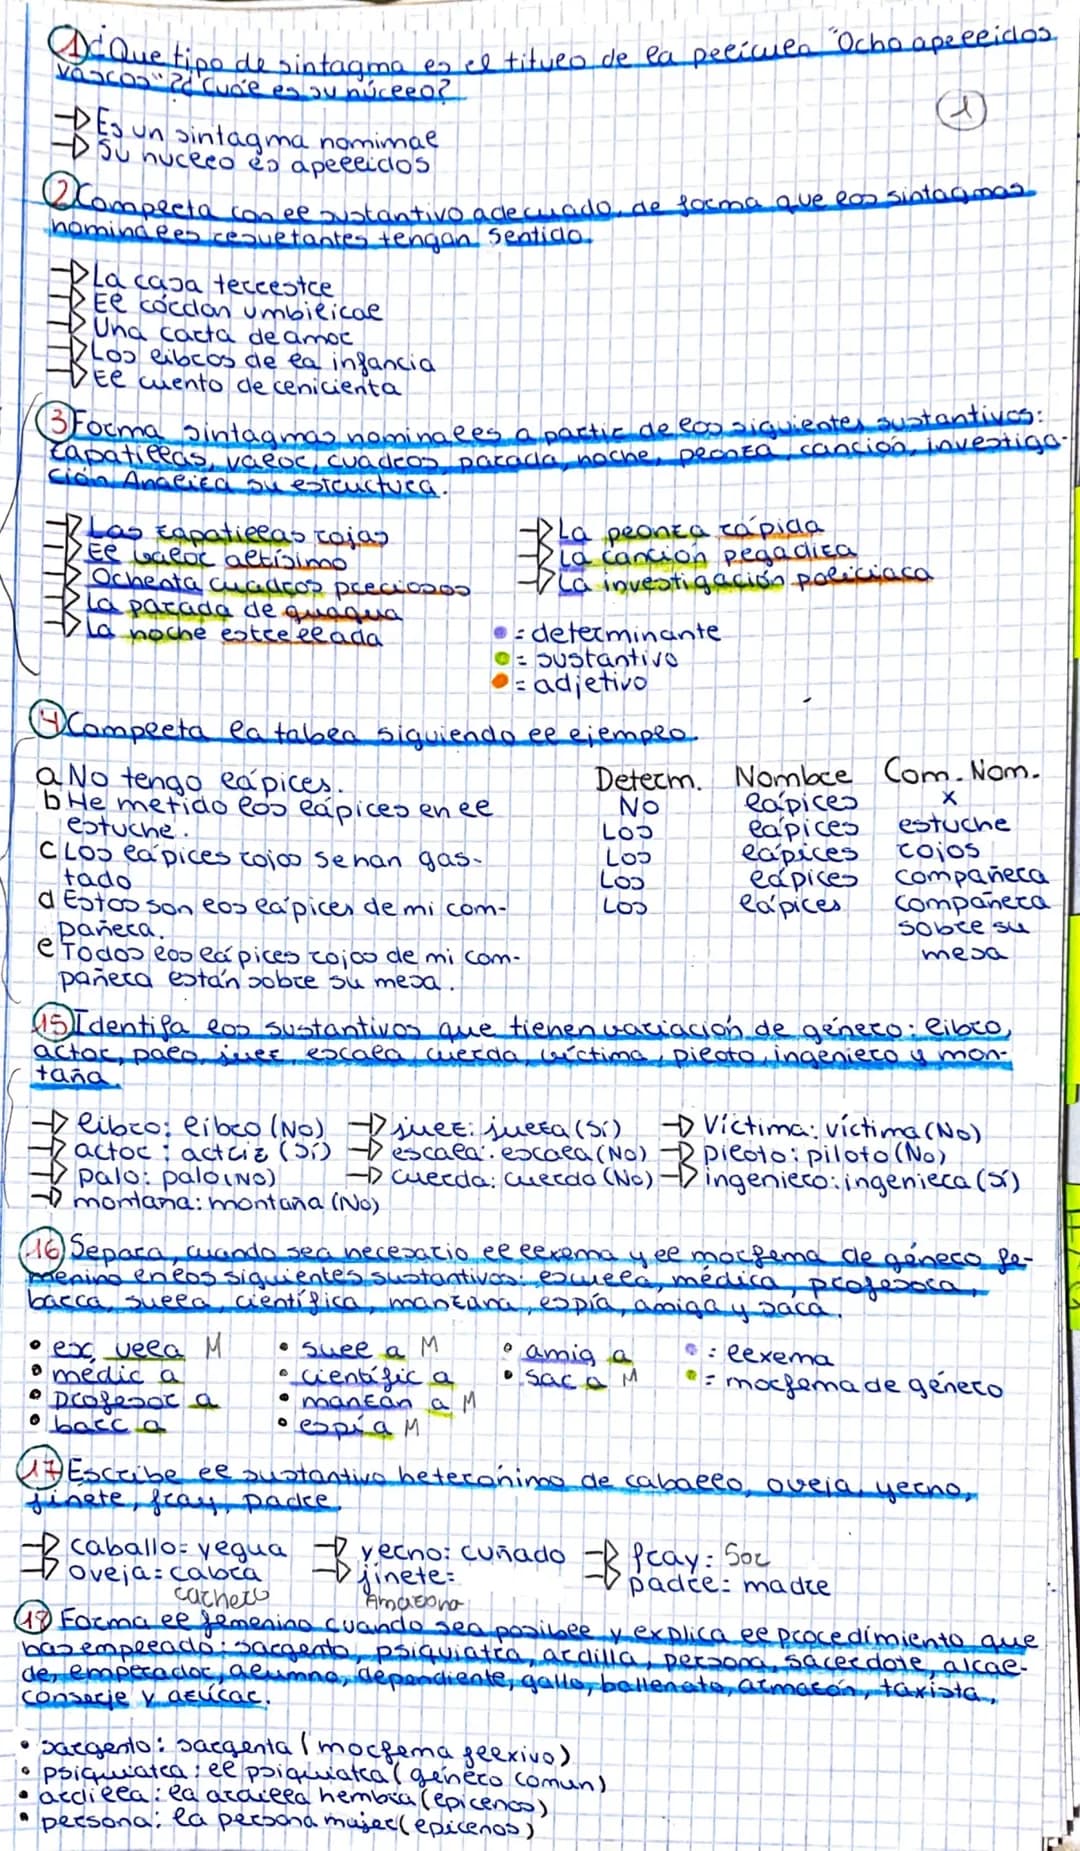 1) ¿Que tipo de sintagma es el titulo de la pelicula "Ocho apellidos
vascos"? ¿Cuál es su núcleo?
→ Es un sintagma nominal
→ Su nucleo es apellidos
1
2) Completa con el sustantivo adecuado, de forma que los sintagmas
nominales resultantes tengan sentido.
→ La casa terrestre
→ El córdon umbilical
→ Una carta de amor
→ Los libros de la infancia
→ El cuento de cenicienta
3) Forma sintagmas nominales a partir de los siguientes sustantivos:
zapatillas, valor, cuadros, parada, noche, peonza, canción, investiga-
ción Analiza su estructura.
→ Las zapatillas rojas
→ El valor altísimo
→ Ochenta cuadros preciosos
→ La parada de guagua
→ La noche estrellada
→ La peonza rápida
→ La canción pegadiza
→ La investigación policiaca
= determinante
= sustantivo
= adjetivo
4) Completa la tabla siguiendo el ejemplo.
a No tengo lápices.
b He metido los lápices en el
estuche.
c Los lápices rojos se han gas-
tado
d Estos son los lápices de mi com-
pañera.
e Todos los lápices rojos de mi com-
pañera están sobre su mesa.
Determ. Nombre Com. Nom.
No lápices x
Los lápices estuche
Los lápices rojos
Los lápices compañera
Los lápices compañera
sobre su
mesa
15) Identifa los sustantivos que tienen variación de género: libro,
actor, palo, juez, escala, cuerda, víctima, piloto, ingeniero y mon-
taña.
→ libro: libro (No) → juez: jueza (Sí) → Víctima: víctima (No)
→ actor: actriz (Sí) → escala: escala (No) → piloto: piloto (No)
→ palo: palo (No) → cuerda: cuerda (No) → ingeniero: ingeniera (Sí)
→ montaña: montaña (No)
16) Separa, cuando sea necesario el lexema y el morfema de género fe-
menino en los siguientes sustantivos: escuela, médica, profesora,
barca, suela, científica, manzana, espía, amiga y saca.
• medic a
• profesor a
• barc a
• suel a M
• científic a
• manzan a M
• espía M
• amig a
• sac a M
: lexema
= morfema de género
17) Escribe el sustantivo heterónimo de caballo, oveja, yerno,
jinete, fray, padre.
→ caballo= yegua
→ oveja= cabra
carnero
→ yerno: cuñado
→ jinete:
Amazona
→ fray: Sor
→ padre: madre
18) Forma el femenino cuando sea posible y explica el procedimiento que
has empleado: sargento, psiquiatra, ardilla, persona, sacerdote, alcal-
de, emperador, alumno, dependiente, gallo, ballenato, armazón, taxista,
conserje y azúcar.
• sargento: sargenta (morfema flexivo)
• psiquiatra: el psiquiatra (género comun)
• ardilla: la ardilla hembra (epicenos)
• persona: la persona mujer (epicenos)